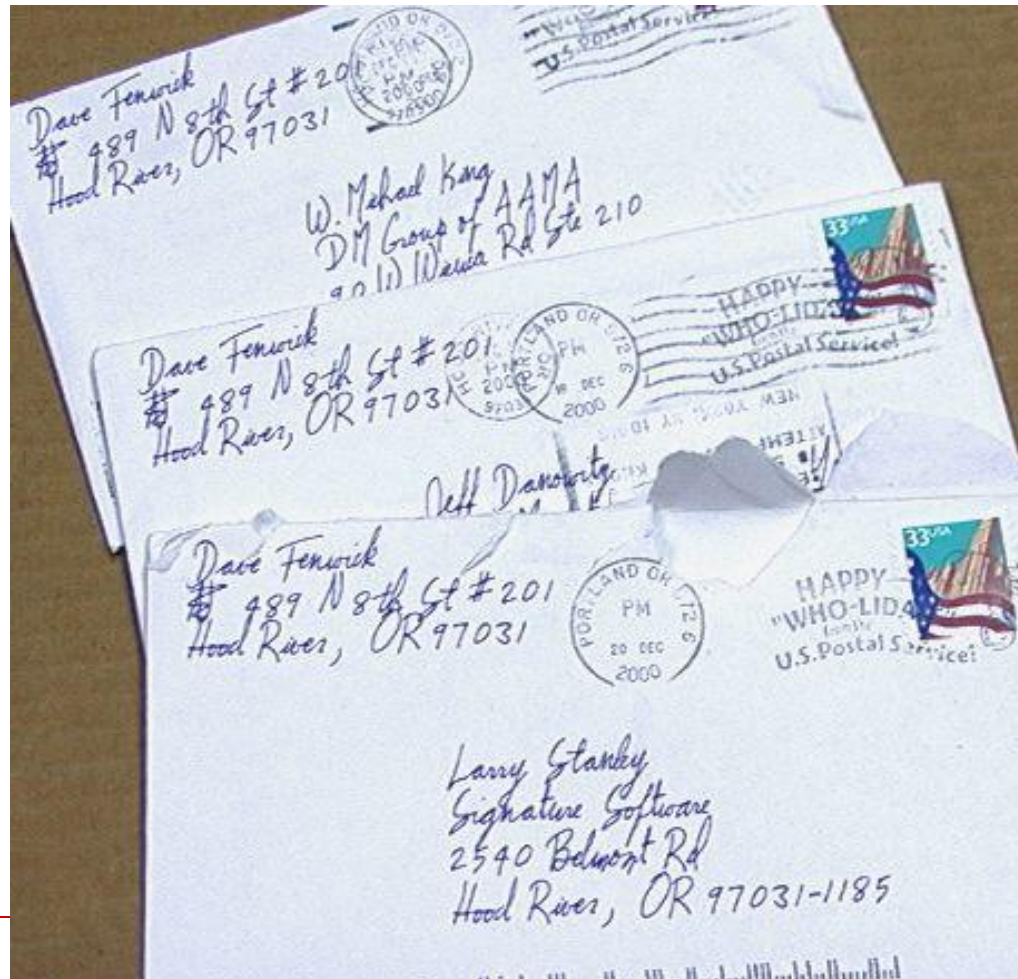 Dave Fenwick
# 489 N 8th St # 20
Hood River, OR 97031
U.S. Postal Service
W. Michael King
DM Group of AAMA
90 W Wawa Rd Ste 210
Dave Fenwick
# 489 N 8th St # 201
Hood River, OR 97031
PORTLAND OR 972 6
PM
18 DEC
2000
HAPPY
"WHO-LIDA
from the
U.S. Postal Service!
33USA
NEW YORK, NY
Jeff Danowitz
Dave Fenwick
# 489 N 8th St # 201
Hood River, OR 97031
PORTLAND OR 972 6
PM
20 DEC
2000
HAPPY
"WHO-LIDA
from the
U.S. Postal Service!
33USA
Larry Stanley
Signature Software
2540 Belmont Rd
Hood River, OR 97031-1185